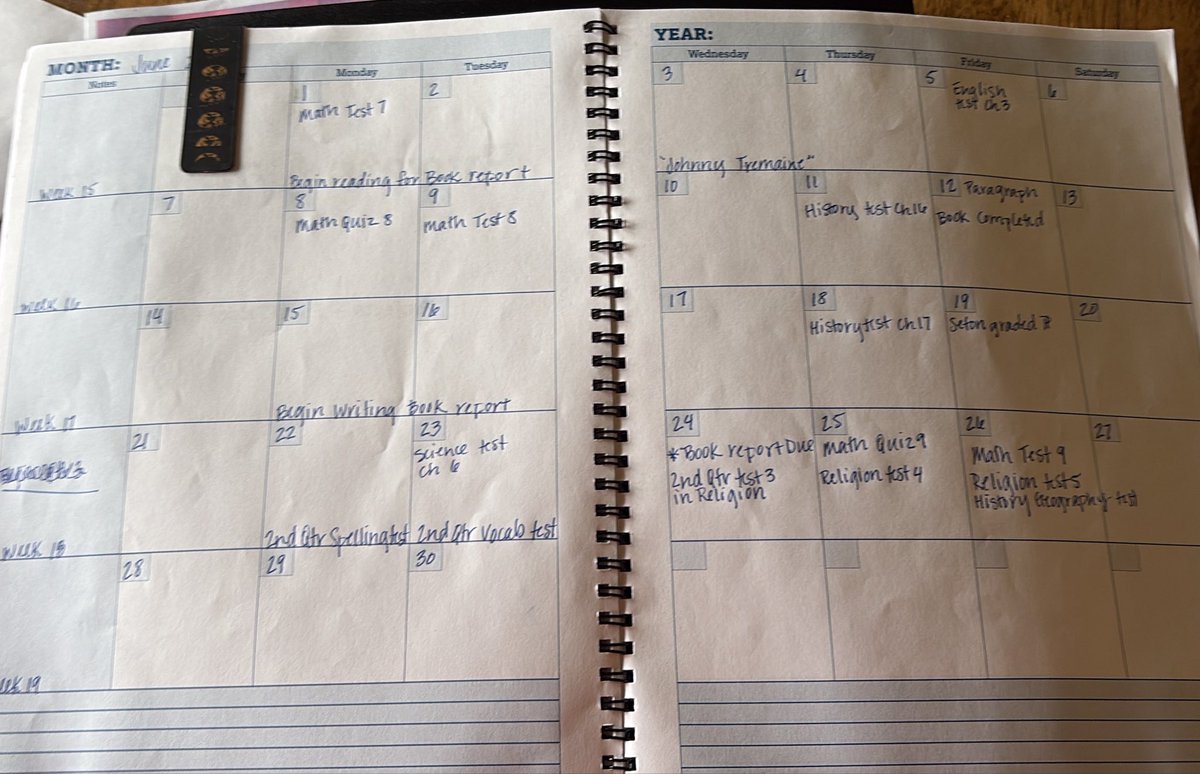 MONTH: June
YEAR:
Notes
Monday
Tuesday
Wednesday
Thursday
Friday
Saturday
1
Math Test 7
2
3
4
5
English
test Ch 3
6
Begin reading for Book report
"Johnny Tremaine"
Week 15
7
8
Math Quiz 8
9
math Test 8
10
11
History test Ch 16
12 Paragraph
Book Completed
13
Week 16
14
15
16
17
18
History test Ch 17
19
Seton graded
20
Begin Writing Book report
Week 17
21
22
23
Science test
Ch 6
24
*Book report Due
2nd Qtr test 3
in Religion
25
math Quiz 9
Religion test 4
26
Math Test 9
Religion test 5
History Geography test
27
2nd Qtr Spelling test
2nd Qtr Vocab test
Week 18
28
29
30
19